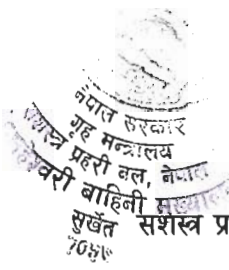 नेपाल सरकार
गृह मन्त्रालय
सशस्त्र प्रहरी बल, नेपाल
बाहिनी
सुर्खेत
सशस्त्र प्र